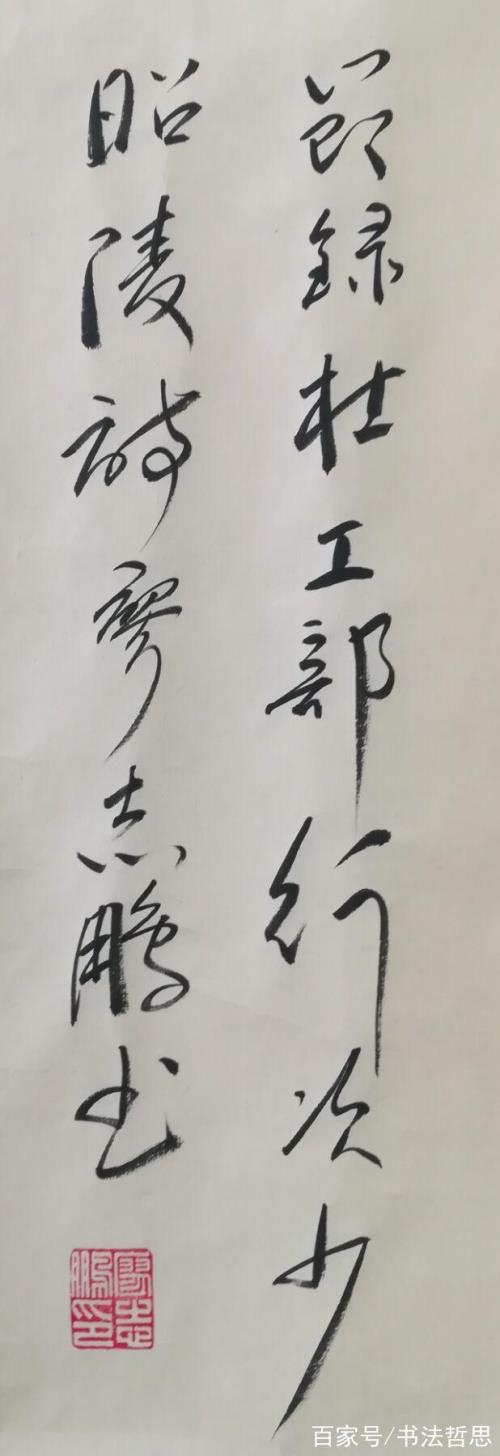 節録杜工部行次少
昭陵詩廖志鵬书
廖志鵬印
百家号/书法哲思